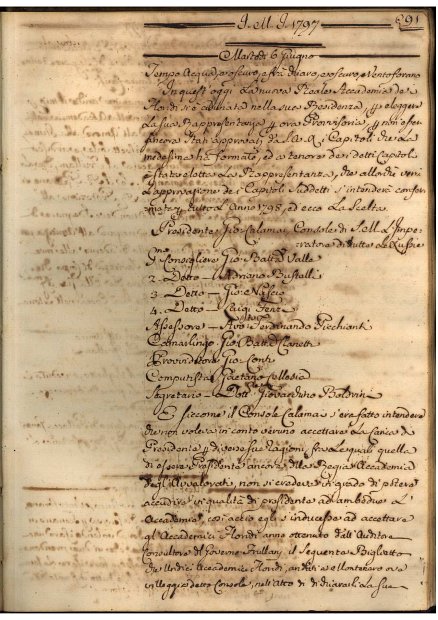 J. M. J. 1797
691
Martedì 6 Giugno
Tempo Acqua, e oscuro, e fra chiaro, e oscuro, e Vento forano
In quest'oggi La nuova Reale Accademia de
Floridi si è adunata nella sua Residenza, p eleggere
La sua Rappresentanza p ora Provvisoria, p non esser
ancora stati approvati da S. A. R. i Capitoli che La
medesima ha formato, ed a tenore dei detti Capitoli
è stata eletta La Rappresentanza, che allorchè verrà
l'approvazione de i Capitoli suddetti s'intenderà confer
mata p tutto L'Anno 1798, ed ecco La Scelta.
Presidente Gio: Calamai, Console di S. M. L'Impe
ratore di tutte Le Russie
P.mo Consigliere Gio: Batta Valle
2. Detto — Adriano
3. Detto — Gio:
4. Detto — Luigi
Assessore — Avo. Ferdinando
Camarlingo Gio: Batta
Provveditore Gio: Conti
Computista Gaetano
Segretario — Dott. Giovacchino Baldvini
E siccome il Console Calamai s'era fatto intendere
che non voleva in conto veruno accettare La carica di
Presidente p diverse sue ragioni, fra Le quali quella
di essere Presidente ancora della Regia Accademia
degl'Avvalorati, non si credeva in grado di potere
accudire in qualità di presidente ad ambedue L'
Accademie, così acciò egli s'inducesse ad accettare
gl'Accademici Floridi anno ottenuto dall'Auditore
Consultore del Governo Frullani il seguente Biglietto
che undici Accademici Floridi, andati a Montenero ove
villeggia detto Console, nell'atto di dichiararli La sua